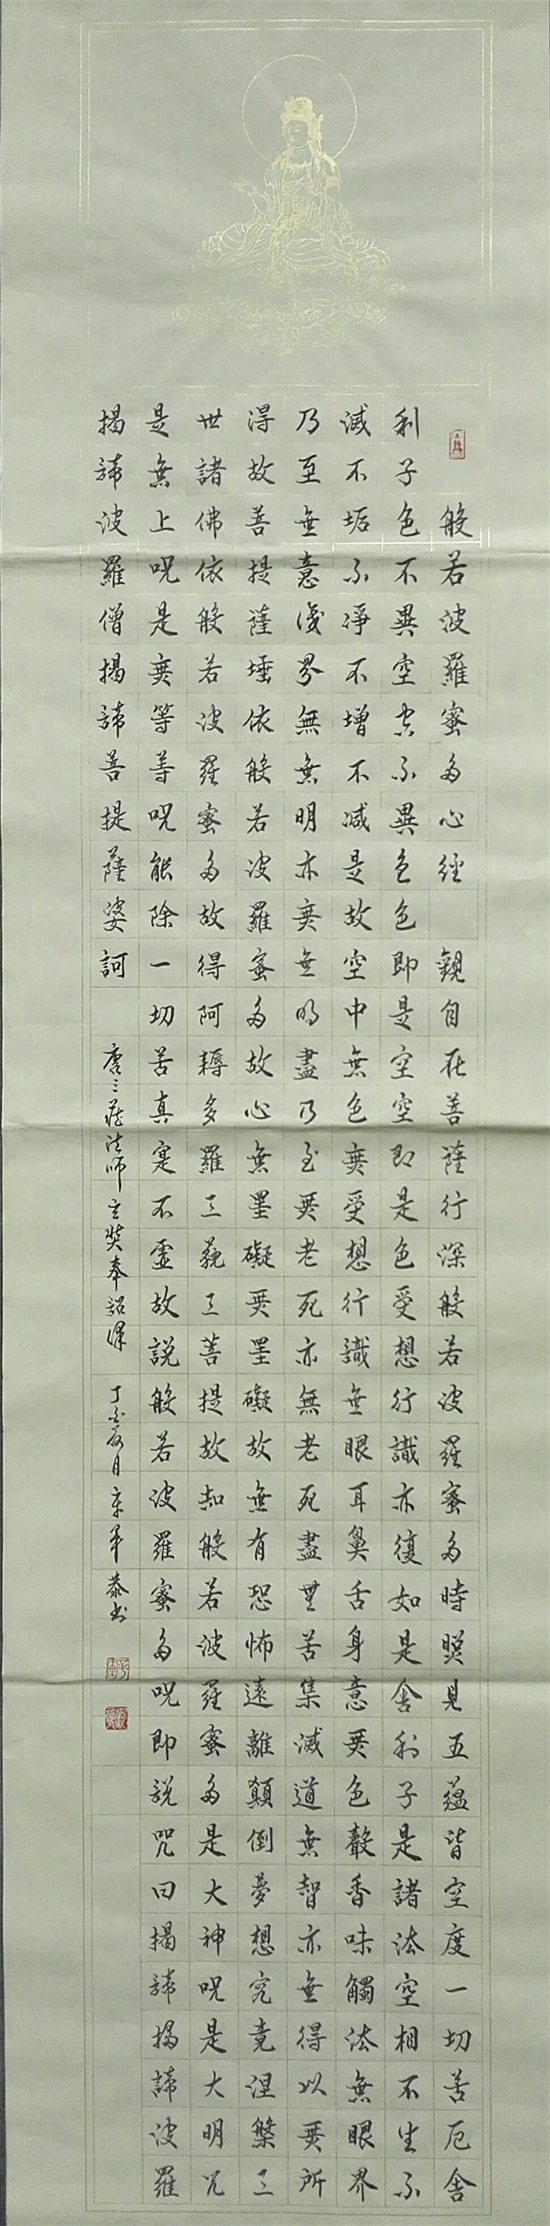 般若波羅蜜多心經 觀自在菩薩行深般若波羅蜜多時照見五蘊皆空度一切苦厄舍
利子色不異空空不異色色即是空空即是色受想行識亦復如是舍利子是諸法空相不生不
滅不垢不淨不增不減是故空中無色無受想行識無眼耳鼻舌身意無色聲香味觸法無眼界
乃至無意識界無無明亦無無明盡乃至無老死亦無老死盡無苦集滅道無智亦無得以無所
得故菩提薩埵依般若波羅蜜多故心無罣礙無罣礙故無有恐怖遠離顛倒夢想究竟涅槃三
世諸佛依般若波羅蜜多故得阿耨多羅三藐三菩提故知般若波羅蜜多是大神咒是大明咒
是無上咒是無等等咒能除一切苦真實不虛故說般若波羅蜜多咒即說咒曰揭諦揭諦波羅
揭諦波羅僧揭諦菩提薩婆訶 唐三藏法師玄奘奉詔譯 丁酉 月 恭書